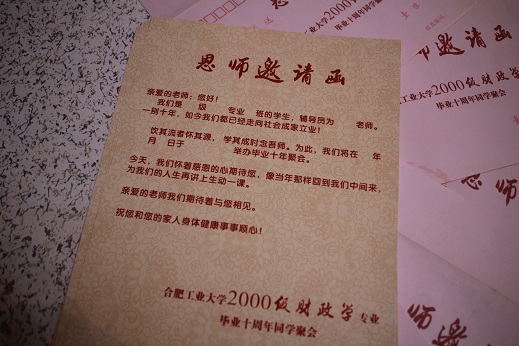 恩师邀请函
亲爱的老师：您好！
我们是 级 专业 班的学生，辅导员为 老师。
一别十年，如今我们都已经走向社会成家立业！
饮其流者怀其源，学其成时念吾师。为此，我们将在 年
月 日于 举办毕业十年聚会。
今天，我们怀着感恩的心期待您，像当年那样回到我们中间来，
为我们的人生再讲上生动一课。
亲爱的老师我们期待着与您相见。
祝您和您的家人身体健康事事顺心！
合肥工业大学2000级财政学专业
毕业十周年同学聚会
合肥工业大学2000
毕业十周年同学
师邀请函
合肥工业大学2000级财政学
毕业十周年同学聚会
师